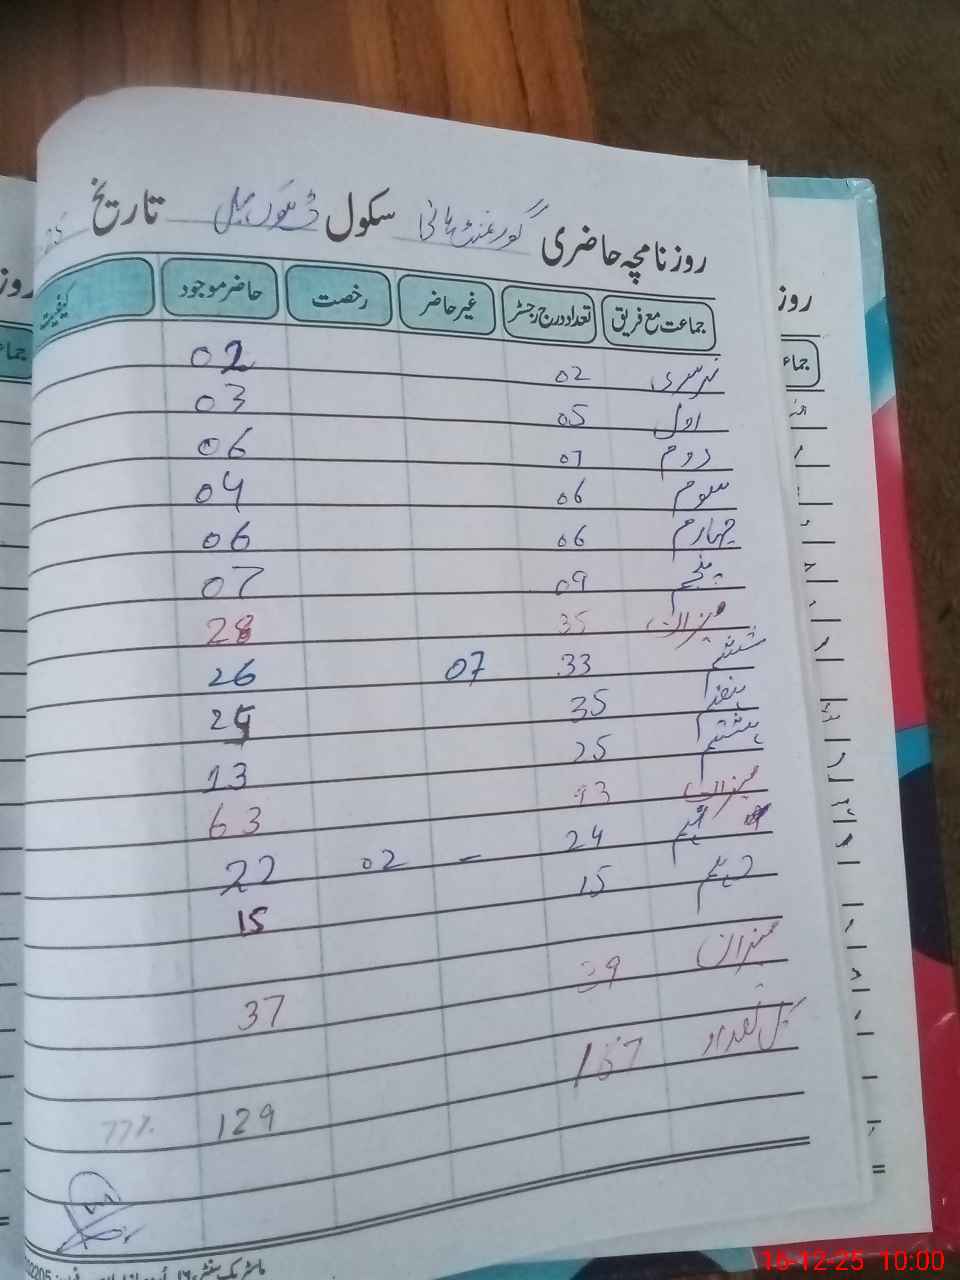 روزنامچہ حاضری گورنمنٹ ہائی سکول تاریخ
جماعت مع فریق تعداد درج رجسٹر غیر حاضر رخصت حاضر موجود کیفیت
نرسری 02 02
اول 05 03
دوم 07 06
سوم 06 04
چہارم 06 06
پنجم 09 07
میزان 35 28
ششم 33 07 26
ہفتم 35
ہشتم 25 13
میزان 93 63
نہم 24 - 02 22
دہم 15 15
میزان 39 37
کل تعداد 167
129 77%
16-12-25 10:00